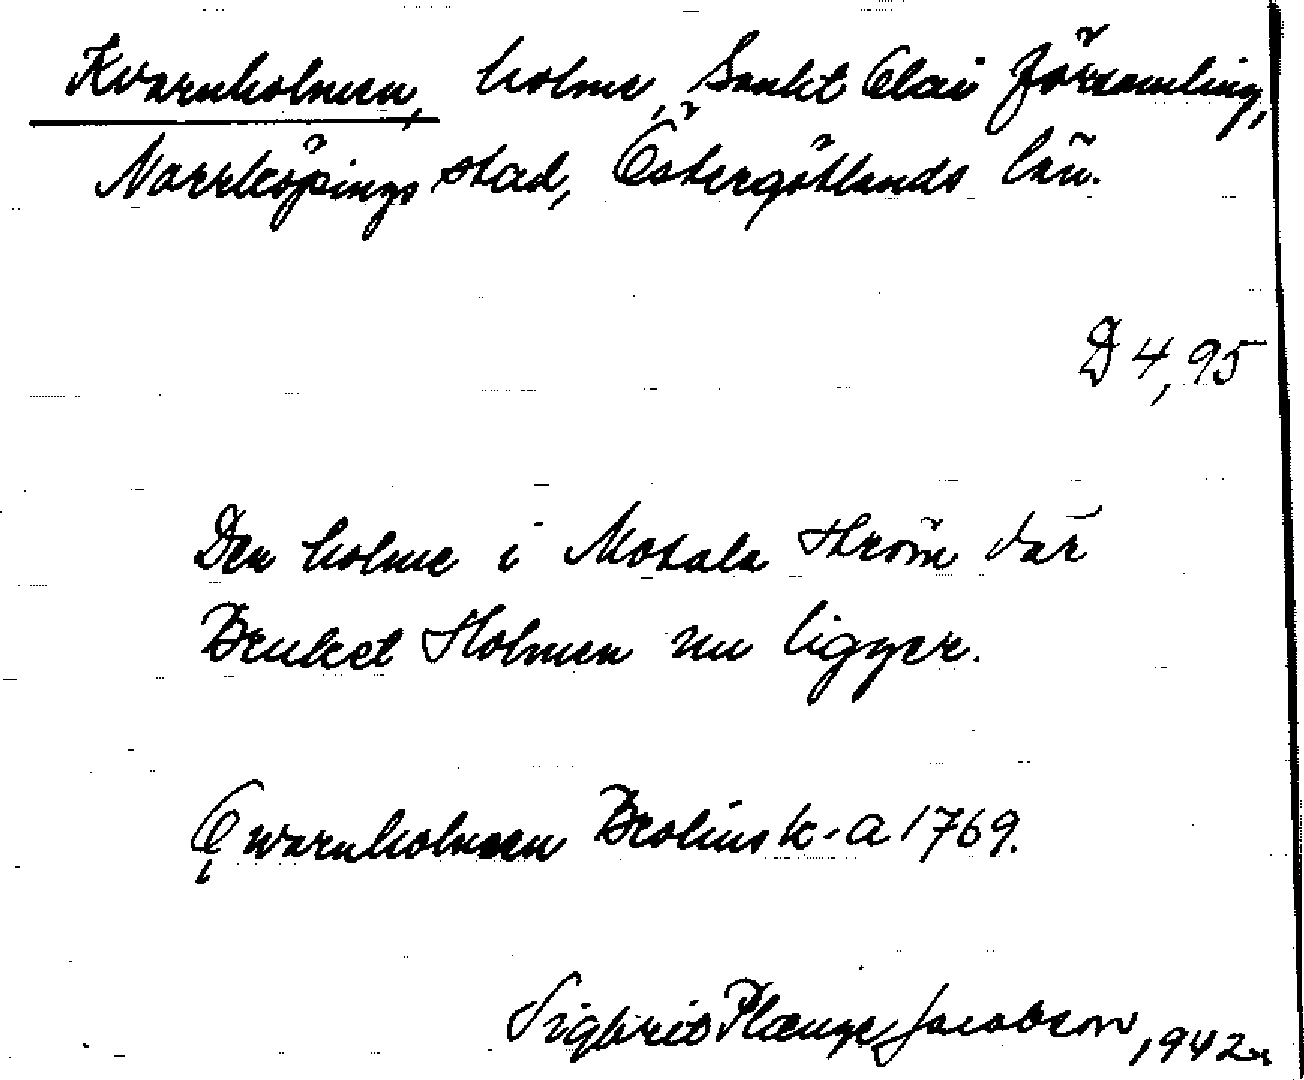 Kvarnholmen, holme, Sankt Olai församling,
Norrköpings stad, Östergötlands län.
D 4,95
Den holme i Motala ström där
Bruket Holmen nu ligger.
Qwarnholmen Brolins k-a 1769.
Sigfrid Plænge Jacobson, 1942